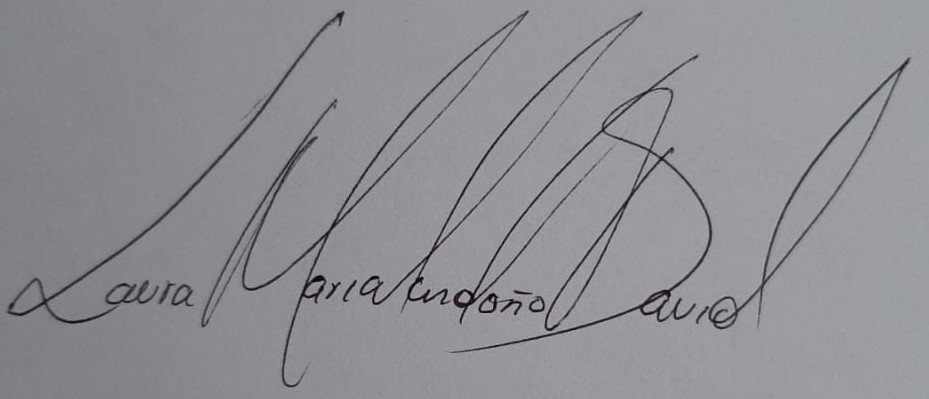 Laura Maria Londoño David